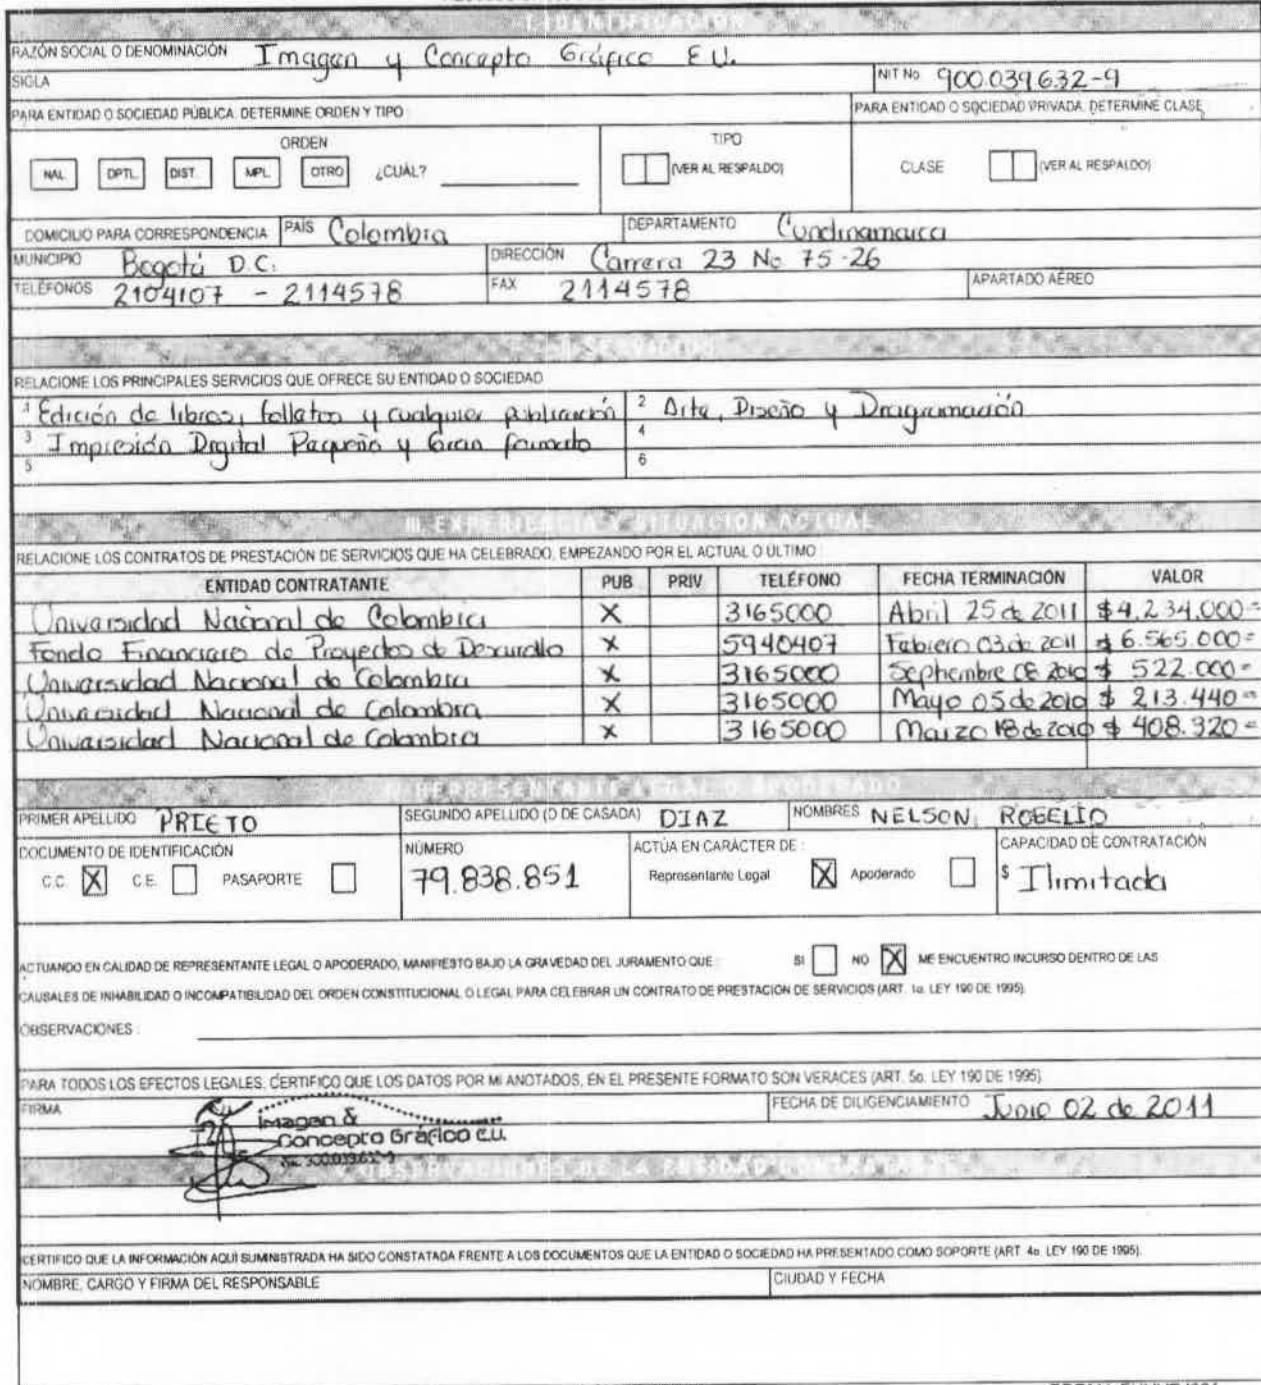 I IDENTIFICACIÓN
RAZÓN SOCIAL O DENOMINACIÓN Imagen y Concepto Gráfico E.U.
SIGLA NIT No 900.039.632-9
PARA ENTIDAD O SOCIEDAD PÚBLICA. DETERMINE ORDEN Y TIPO PARA ENTIDAD O SOCIEDAD PRIVADA. DETERMINE CLASE
ORDEN TIPO
NAL. DPTL. DIST. MPL. OTRO ¿CUÁL? (VER AL RESPALDO) CLASE (VER AL RESPALDO)
DOMICILIO PARA CORRESPONDENCIA PAÍS Colombia DEPARTAMENTO Cundinamarca
MUNICIPIO Bogotá D.C. DIRECCIÓN Carrera 23 No 75-26
TELÉFONOS 2104107 - 2114578 FAX 2114578 APARTADO AÉREO
II SERVICIOS
RELACIONE LOS PRINCIPALES SERVICIOS QUE OFRECE SU ENTIDAD O SOCIEDAD
1 Edición de libros, folletos y cualquier publicación 2 Arte, Diseño y Diagramación
3 Impresión Digital Pequeño y Gran formato 4
5 6
III EXPERIENCIA Y SITUACIÓN ACTUAL
RELACIONE LOS CONTRATOS DE PRESTACIÓN DE SERVICIOS QUE HA CELEBRADO, EMPEZANDO POR EL ACTUAL O ULTIMO
ENTIDAD CONTRATANTE PUB PRIV TELÉFONO FECHA TERMINACIÓN VALOR
Universidad Nacional de Colombia X 3165000 Abril 25 de 2011 $4.234.000=
Fondo Financiero de Proyectos de Desarrollo X 5940407 Febrero 03 de 2011 $6.565.000=
Universidad Nacional de Colombia X 3165000 Septiembre 08 2010 $ 522.000=
Universidad Nacional de Colombia X 3165000 Mayo 05 de 2010 $ 213.440=
Universidad Nacional de Colombia X 3165000 Marzo 18 de 2010 $ 408.320=
IV REPRESENTANTE LEGAL O APODERADO
PRIMER APELLIDO PRIETO SEGUNDO APELLIDO (O DE CASADA) DIAZ NOMBRES NELSON ROGELIO
DOCUMENTO DE IDENTIFICACIÓN NÚMERO ACTÚA EN CARÁCTER DE : CAPACIDAD DE CONTRATACIÓN
C.C. X C.E. PASAPORTE 79.838.851 Representante Legal X Apoderado $ Ilimitada
ACTUANDO EN CALIDAD DE REPRESENTANTE LEGAL O APODERADO, MANIFIESTO BAJO LA GRAVEDAD DEL JURAMENTO QUE : SI NO X ME ENCUENTRO INCURSO DENTRO DE LAS
CAUSALES DE INHABILIDAD O INCOMPATIBILIDAD DEL ORDEN CONSTITUCIONAL O LEGAL PARA CELEBRAR UN CONTRATO DE PRESTACIÓN DE SERVICIOS (ART. 1o. LEY 190 DE 1995).
OBSERVACIONES :
PARA TODOS LOS EFECTOS LEGALES, CERTIFICO QUE LOS DATOS POR MI ANOTADOS, EN EL PRESENTE FORMATO SON VERACES (ART. 5o. LEY 190 DE 1995)
FIRMA FECHA DE DILIGENCIAMIENTO Junio 02 de 2011
Imagen &
Concepto Gráfico E.U.
V OBSERVACIONES DE LA ENTIDAD CONTRATANTE
CERTIFICO QUE LA INFORMACIÓN AQUÍ SUMINISTRADA HA SIDO CONSTATADA FRENTE A LOS DOCUMENTOS QUE LA ENTIDAD O SOCIEDAD HA PRESENTADO COMO SOPORTE (ART 4o. LEY 190 DE 1995).
NOMBRE, CARGO Y FIRMA DEL RESPONSABLE CIUDAD Y FECHA